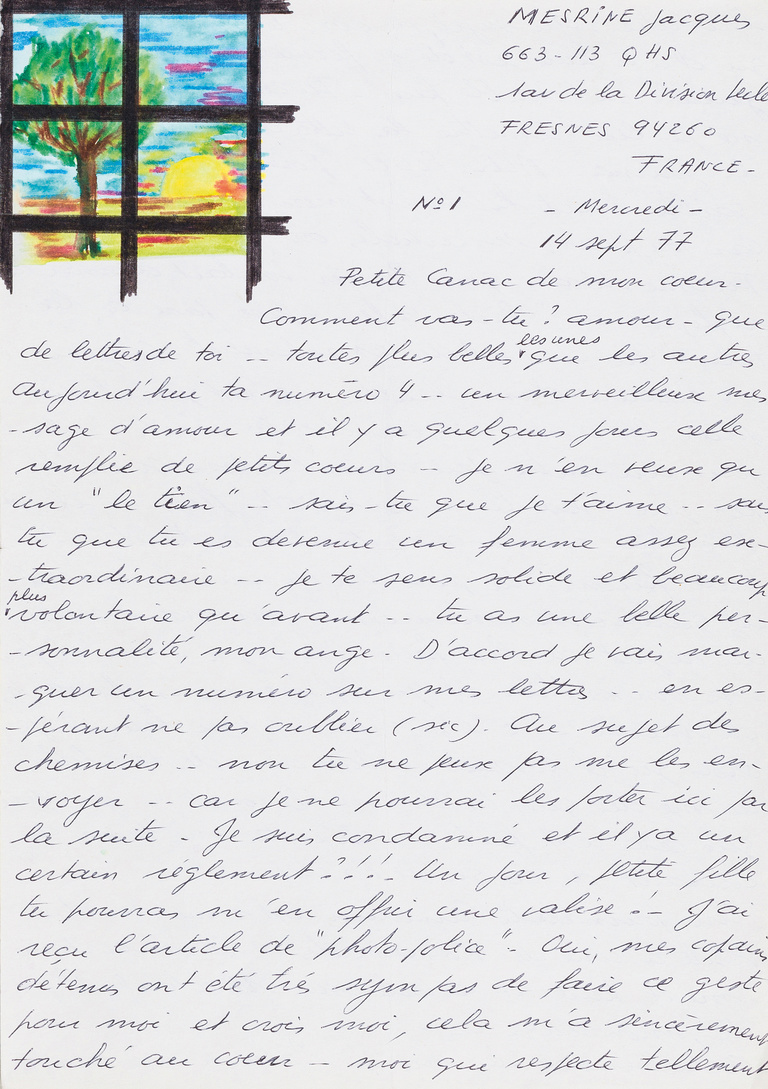 MESRINE Jacques
663-113 QHS
1 av de la Division Lecle
FRESNES 94260
FRANCE -
No 1 - Mercredi -
14 sept 77
Petite Canac de mon coeur -
Comment vas-tu ? amour - que
de lettres de toi -- toutes plus belles les unes que les autres
Aujourd'hui ta numéro 4 -- un merveilleux mes
-sage d'amour et il y a quelques jours celle
remplie de petits coeurs -- je n'en veux qu
un "le tien" -- sais-tu que je t'aime -- sais
tu que tu es devenue un femme assez ex-
-traordinaire -- je te sens solide et beaucoup
plus volontaire qu'avant -- tu as une belle per-
-sonnalité, mon ange - D'accord je vais mar-
-quer un numéro sur mes lettres -- en es-
-pérant ne pas oublier (sic). Au sujet des
chemises -- non tu ne peux pas me les en-
-voyer -- car je ne pourrai les porter ici par
la suite - Je suis condamné et il y a un
certain règlement ? ! ! - Un jour, petite fille
tu pourras m'en offrir une valise ! - J'ai
reçu l'article de "photo-police" - Oui, mes copains
détenus ont été très sympas de faire ce geste
pour moi et crois moi, cela m'a sincèrement
touché au coeur - moi qui respecte tellement